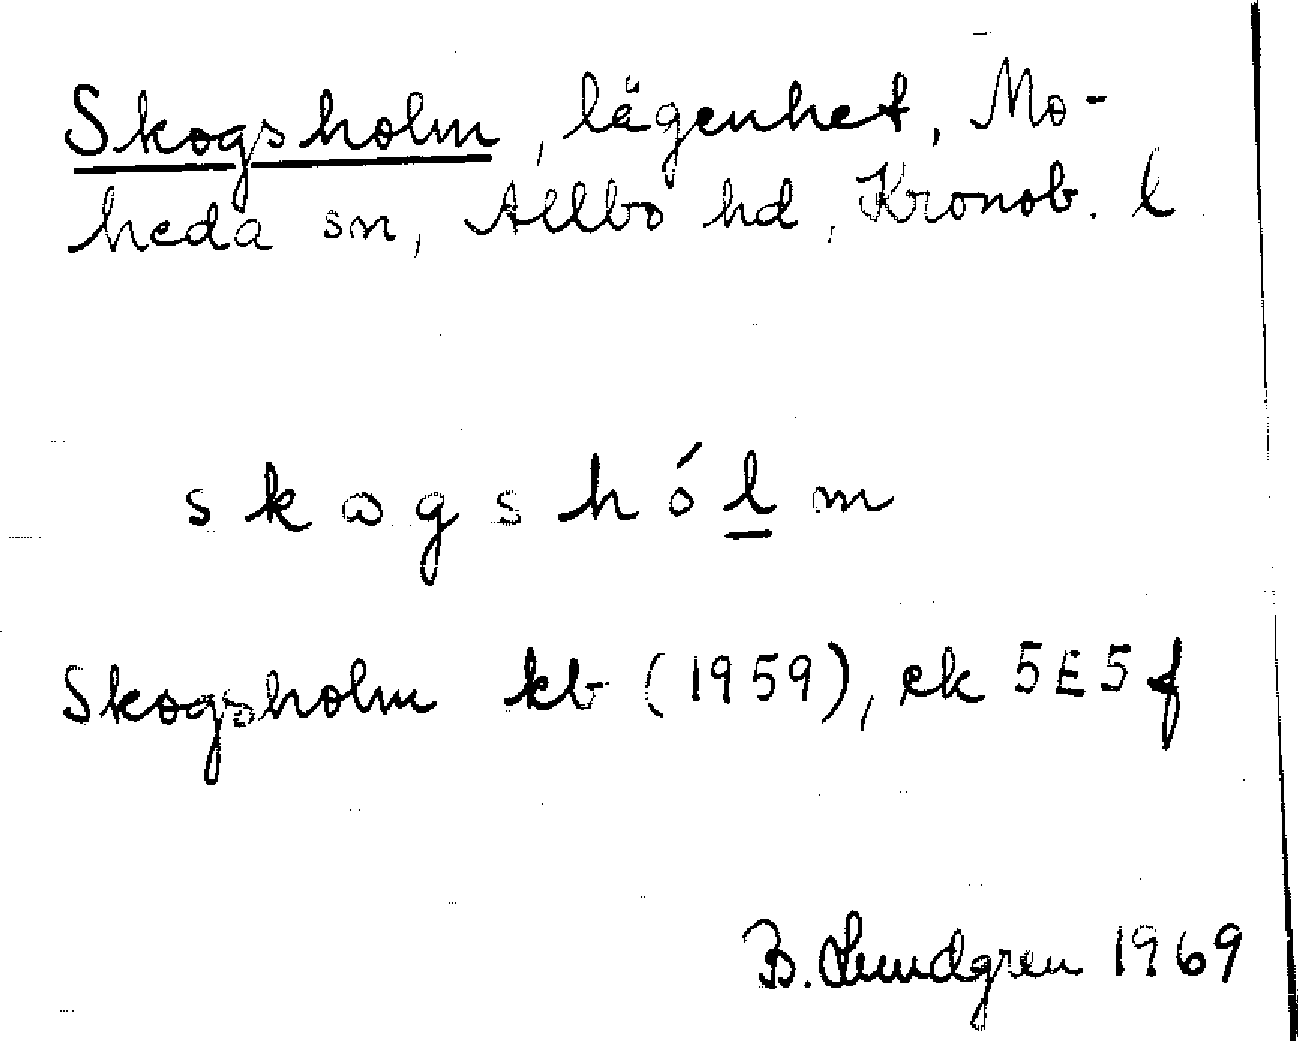 Skogsholm, lägenhet, Mo-
heda sn, Allbo hd, Kronob. l
skogshólm
Skogsholm kb (1959), ek 5E5f
B. Lundgren 1969